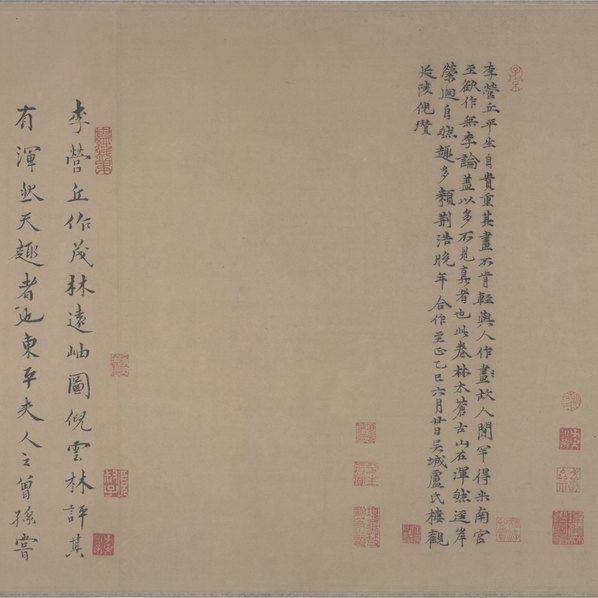 李營丘平生自貴重其畫不肯輕與人作畫故人間罕得米南宮
至欲作無李論蓋以多不見真者也此卷林木蒼古山石渾然逕岸
縈迴自然趣多類荊浩晚年合作至正乙巳六月廿日吳城盧氏樓觀
延陵倪瓚
李營丘作茂林遠岫圖倪雲林評其
有渾然天趣者也東平夫人之曾孫嘗